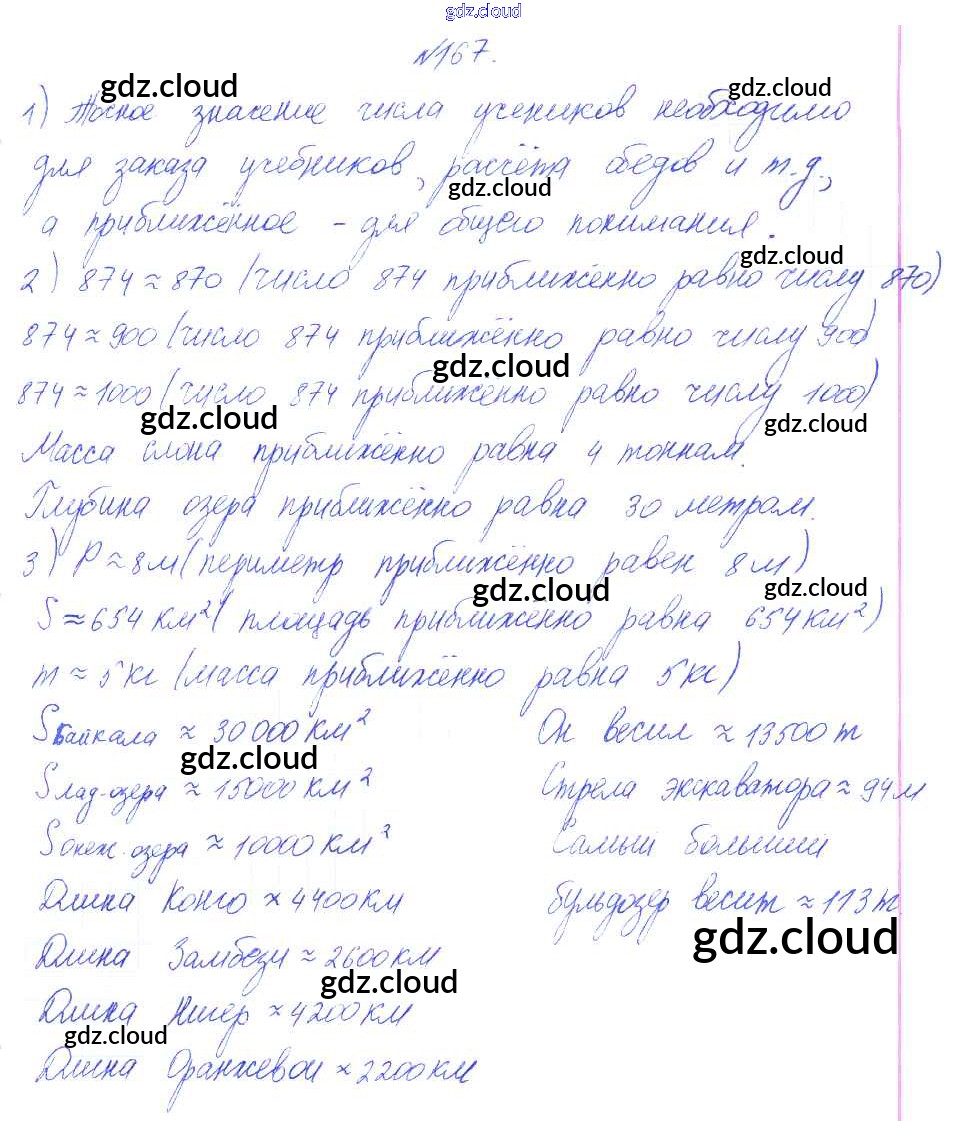 gdz.cloud
№167.
gdz.cloud
gdz.cloud
1) Точное значение числа учеников необходимо
для заказа учебников, расчёта обедов и т.д.,
gdz.cloud
а приближённое – для общего понимания.
gdz.cloud
2) 874 ≈ 870 (число 874 приближённо равно числу 870)
874 ≈ 900 (число 874 приближённо равно числу 900)
gdz.cloud
874 ≈ 1000 (число 874 приближенно равно числу 1000)
gdz.cloud
gdz.cloud
Масса слона приближённо равна 4 тоннам.
Глубина озера приближённо равна 30 метрам.
3) P ≈ 8 м (периметр приближённо равен 8 м)
gdz.cloud
gdz.cloud
S ≈ 654 км² (площадь приближенно равна 654 км²)
m ≈ 5 кг (масса приближённо равна 5 кг)
S Байкала ≈ 30 000 км²
gdz.cloud
S лад. озера ≈ 15000 км²
S онеж. озера ≈ 10000 км²
Длина Конго ≈ 4400 км
Длина Замбези ≈ 2600 км
gdz.cloud
Длина Нигер ≈ 4200 км
gdz.cloud
Длина Оранжевой ≈ 2200 км
Он весил ≈ 13500 т
Стрела экскаватора ≈ 94 м
Самый большии
бульдозер весит ≈ 113 т.
gdz.cloud